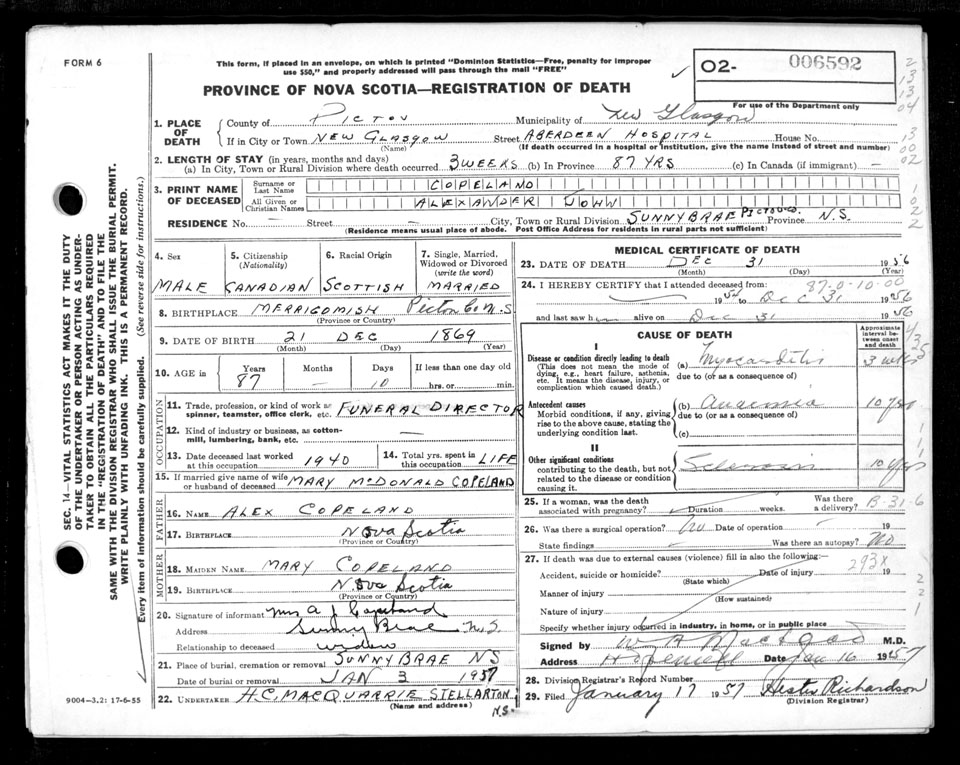 FORM 6
This form, if placed in an envelope, on which is printed "Dominion Statistics—Free, penalty for improper
use $50," and properly addressed will pass through the mail "FREE"
O2- 006592
For use of the Department only
PROVINCE OF NOVA SCOTIA—REGISTRATION OF DEATH
1. PLACE OF DEATH
County of PICTOU Municipality of New Glasgow
If in City or Town NEW GLASGOW Street ABERDEEN HOSPITAL House No.
(Name) (If death occurred in a hospital or institution, give the name instead of street and number)
2. LENGTH OF STAY (in years, months and days)
(a) In City, Town or Rural Division where death occurred 3 WEEKS (b) In Province 87 YRS (c) In Canada (if immigrant) —
3. PRINT NAME OF DECEASED
Surname or Last Name COPELAND
All Given or Christian Names ALEXANDER JOHN
RESIDENCE No. — Street — City, Town or Rural Division SUNNYBRAE PICTOU CO. Province N.S.
(Residence means usual place of abode. Post Office Address for residents in rural parts not sufficient)
4. Sex MALE
5. Citizenship (Nationality) CANADIAN
6. Racial Origin SCOTTISH
7. Single, Married, Widowed or Divorced (write the word) MARRIED
8. BIRTHPLACE MERRIGOMISH Pictou Co N.S
(Province or Country)
9. DATE OF BIRTH 21 DEC 1869
(Month) (Day) (Year)
10. AGE in Years 87 Months — Days 10 If less than one day old hrs. or min.
OCCUPATION
11. Trade, profession, or kind of work as spinner, teamster, office clerk, etc. FUNERAL DIRECTOR
12. Kind of industry or business, as cotton-mill, lumbering, bank, etc. —
13. Date deceased last worked at this occupation 1940
14. Total yrs. spent in this occupation LIFE
15. If married give name of wife or husband of deceased MARY McDONALD COPELAND
FATHER
16. NAME ALEX COPELAND
17. BIRTHPLACE Nova Scotia
(Province or Country)
MOTHER
18. MAIDEN NAME MARY COPELAND
19. BIRTHPLACE Nova Scotia
(Province or Country)
20. Signature of informant Mrs A J Copeland
Address Sunny Brae N.S.
Relationship to deceased widow
21. Place of burial, cremation or removal SUNNYBRAE NS
Date of burial or removal JAN 3 1957
22. UNDERTAKER H.C. MACQUARRIE STELLARTON N.S.
(Name and address)
9004—3.2: 17-6-55
MEDICAL CERTIFICATE OF DEATH
23. DATE OF DEATH DEC 31 1956
(Month) (Day) (Year)
24. I HEREBY CERTIFY that I attended deceased from: 87-0-10-00
1954 to Dec 31 1956
and last saw h alive on Dec 31 1956
CAUSE OF DEATH
Approximate interval between onset and death
I
Disease or condition directly leading to death
(This does not mean the mode of dying, e.g., heart failure, asthenia, etc. It means the disease, injury, or complication which caused death.)
(a) Myocarditis 3 wks
due to (or as a consequence of)
Antecedent causes
Morbid conditions, if any, giving rise to the above cause, stating the underlying condition last.
(b) Anaemia 10 yrs
due to (or as a consequence of)
(c)
II
Other significant conditions
contributing to the death, but not related to the disease or condition causing it.
10 yrs
25. If a woman, was the death associated with pregnancy? Duration weeks. Was there a delivery? B-31-6
26. Was there a surgical operation? No Date of operation — 19
State findings — Was there an autopsy? No
27. If death was due to external causes (violence) fill in also the following:—
Accident, suicide or homicide? Date of injury 19
(State which) 293x
Manner of injury
(How sustained)
Nature of injury
Specify whether injury occurred in industry, in home, or in public place
Signed by M.D.
Address Hopewell Date Jan 16 1957
28. Division Registrar's Record Number
29. Filed January 17 1957 Hester Richardson
(Division Registrar)
SEC. 14—VITAL STATISTICS ACT MAKES IT THE DUTY
OF THE UNDERTAKER OR PERSON ACTING AS UNDER-
TAKER TO OBTAIN ALL THE PARTICULARS REQUIRED
IN THE "REGISTRATION OF DEATH" AND TO FILE THE
SAME WITH THE DIVISION REGISTRAR WHO SHALL ISSUE THE BURIAL PERMIT.
WRITE PLAINLY WITH UNFADING INK. THIS IS A PERMANENT RECORD.
Every item of information should be carefully supplied. (See reverse side for instructions.)